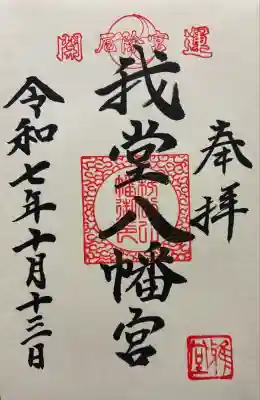 開運 厄除宮
奉拝
我堂八幡宮
令和七年十月十三日